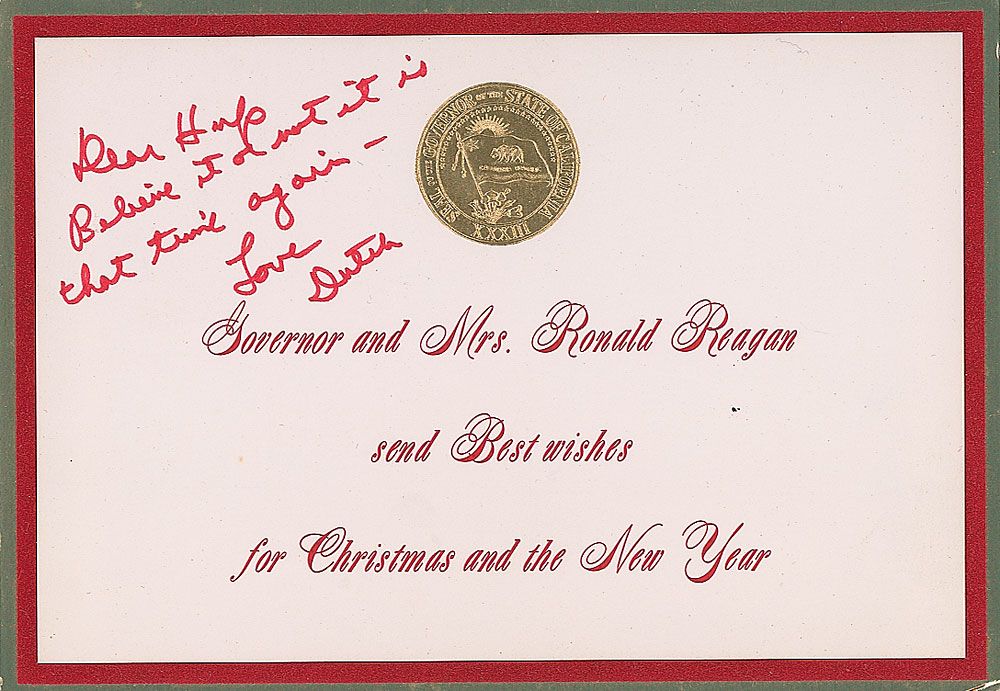 Dear Hup
Believe it or not it is
that time again –
Love
Dutch
SEAL OF THE GOVERNOR OF THE STATE OF CALIFORNIA
XXXIII
Governor and Mrs. Ronald Reagan
send Best wishes
for Christmas and the New Year